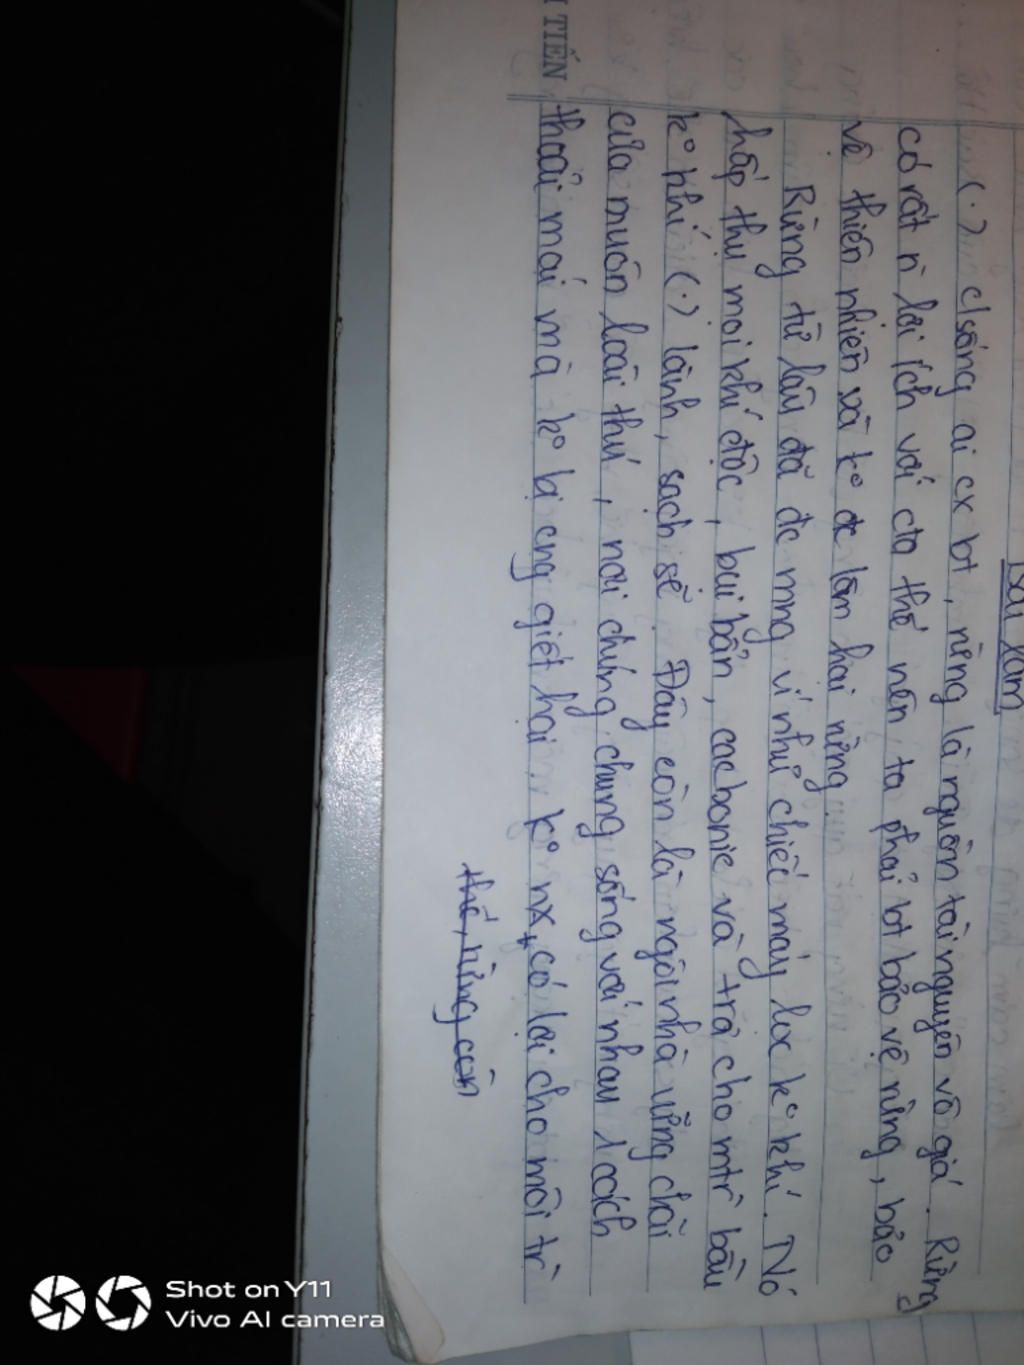 Bài làm
(.) c/sống ai cx bt, rừng là nguồn tài nguyên vô giá. Rừng
có rất n` lợi ích với cta thế nên ta phải bt bảo vệ rừng, bảo
vệ thiên nhiên và ko đc làm hại rừng.
Rừng từ lâu đã đc mng ví như chiếc máy lọc ko khí. Nó
hấp thụ mọi khí độc, bụi bẩn, cacbonic và trả cho mtr` bầu
ko khí (.) lành, sạch sẽ. Đây còn là ngôi nhà
của muôn loài thú, nơi chúng chung sống với nhau 1 cách
thoải mái mà ko bị cng giết hại. ko nx, có lợi cho môi tr`
thế, rừng còn
I TIẾN
Shot on Y11
Vivo AI camera